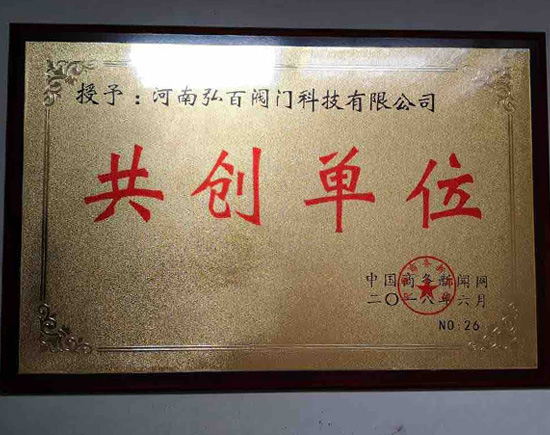 授予：河南弘百阀门科技有限公司
共创单位
中国商务新闻网
二〇一八年六月
NO:26